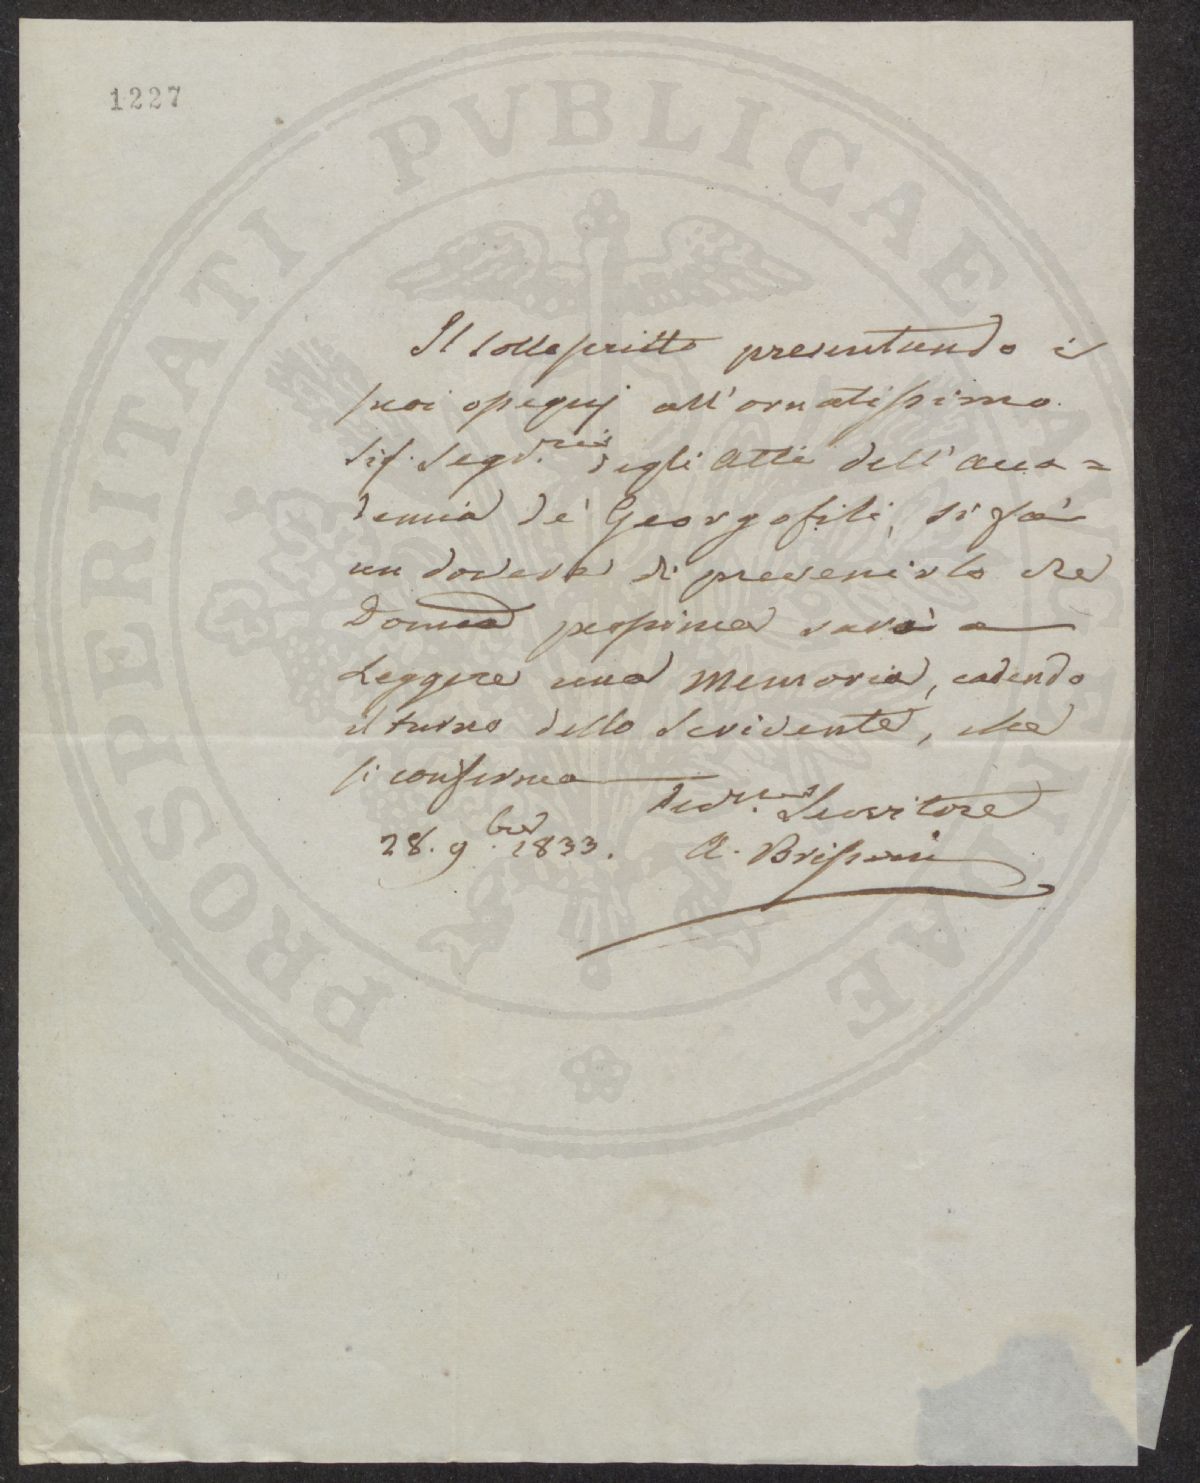 1227
PROSPERITATI PVBLICAE AVGENDAE
Il sottoscritto presentando i
suoi ossequj all'ornatissimo
Sig. Segr.rio degli Atti dell'Acca=
demia de' Georgofili, si fà
un dovere di prevenirlo che
Domca prossima sarà a
Leggere una Memoria, cadendo
il turno dello Scrivente, che
si conferma
Dev.mo Servitore
28. 9.bre 1833. A.